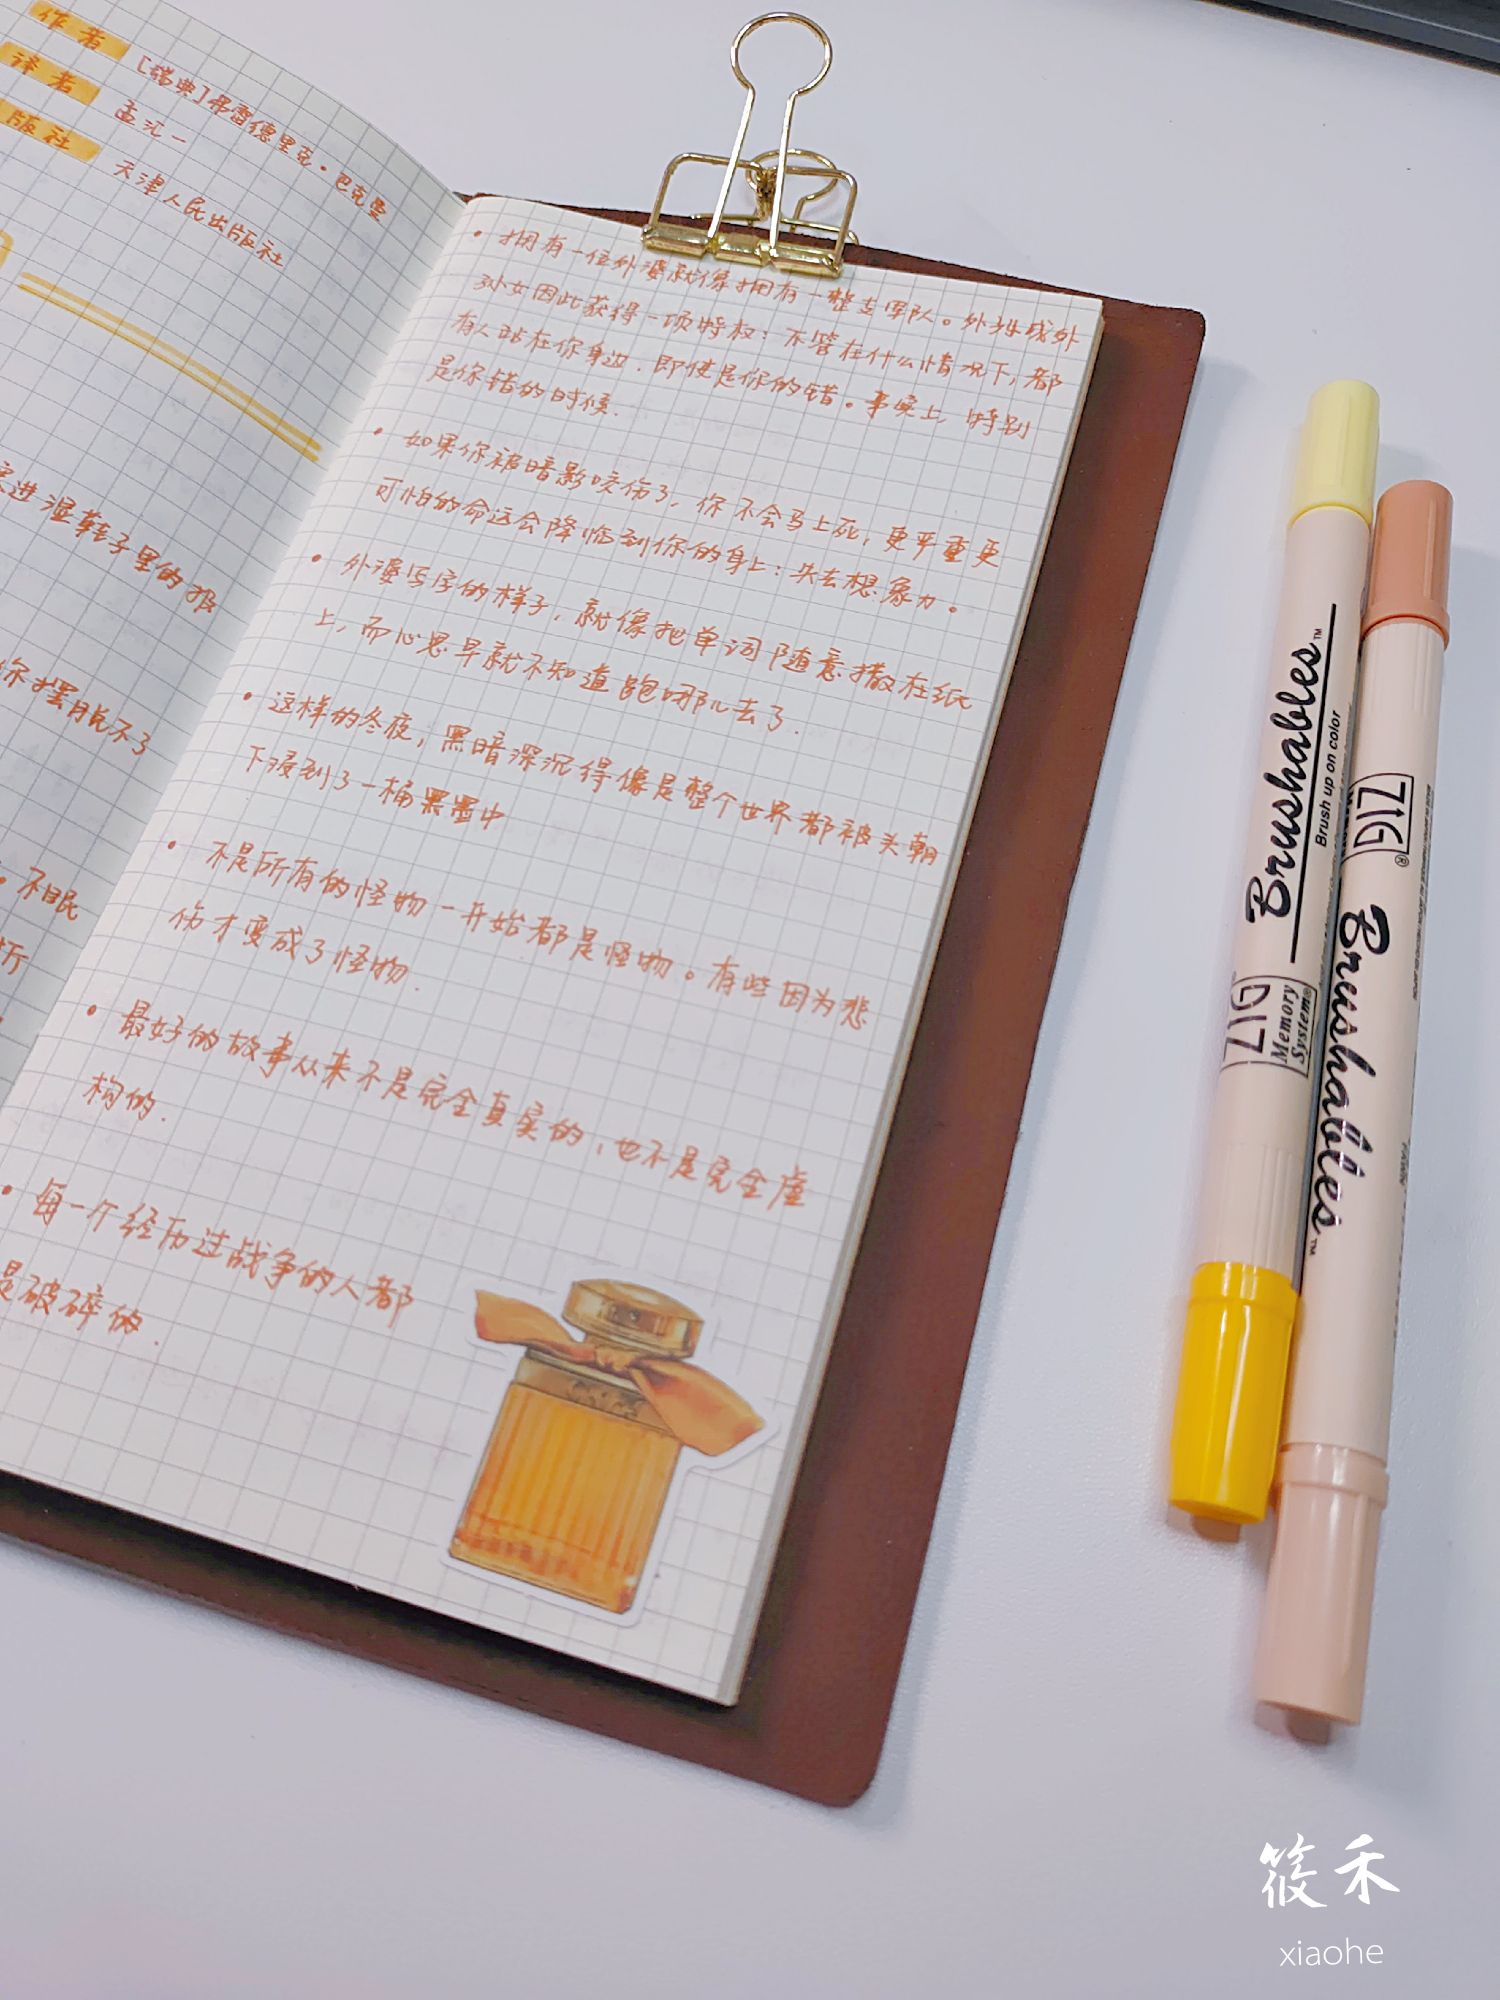 作者
[瑞典]弗雷德里克·巴克曼
译者
孟汇一
版社
天津人民出版社
进湿鞋子里的报
你摆脱不了
不眠
• 拥有一位外婆就像拥有一整支军队。外孙或外
孙女因此获得一项特权：不管在什么情况下，都
有人站在你身边，即使是你的错。事实上，特别
是你错的时候.
• 如果你被暗影咬伤了，你不会马上死，更严重更
可怕的命运会降临到你的身上：失去想象力。
• 外婆写字的样子，就像把单词随意撒在纸
上，而心思早就不知道跑哪儿去了.
• 这样的冬夜，黑暗深沉得像是整个世界都被头朝
下浸到了一桶黑墨中
• 不是所有的怪物一开始都是怪物。有些因为悲
伤才变成了怪物.
• 最好的故事从来不是完全真实的，也不是完全虚
构的.
• 每一个经历过战争的人都
是破碎的.
Brushables™
Brush up on color
ZIG
Memory
System®
ZIG®
Brushables™
筱禾
xiaohe